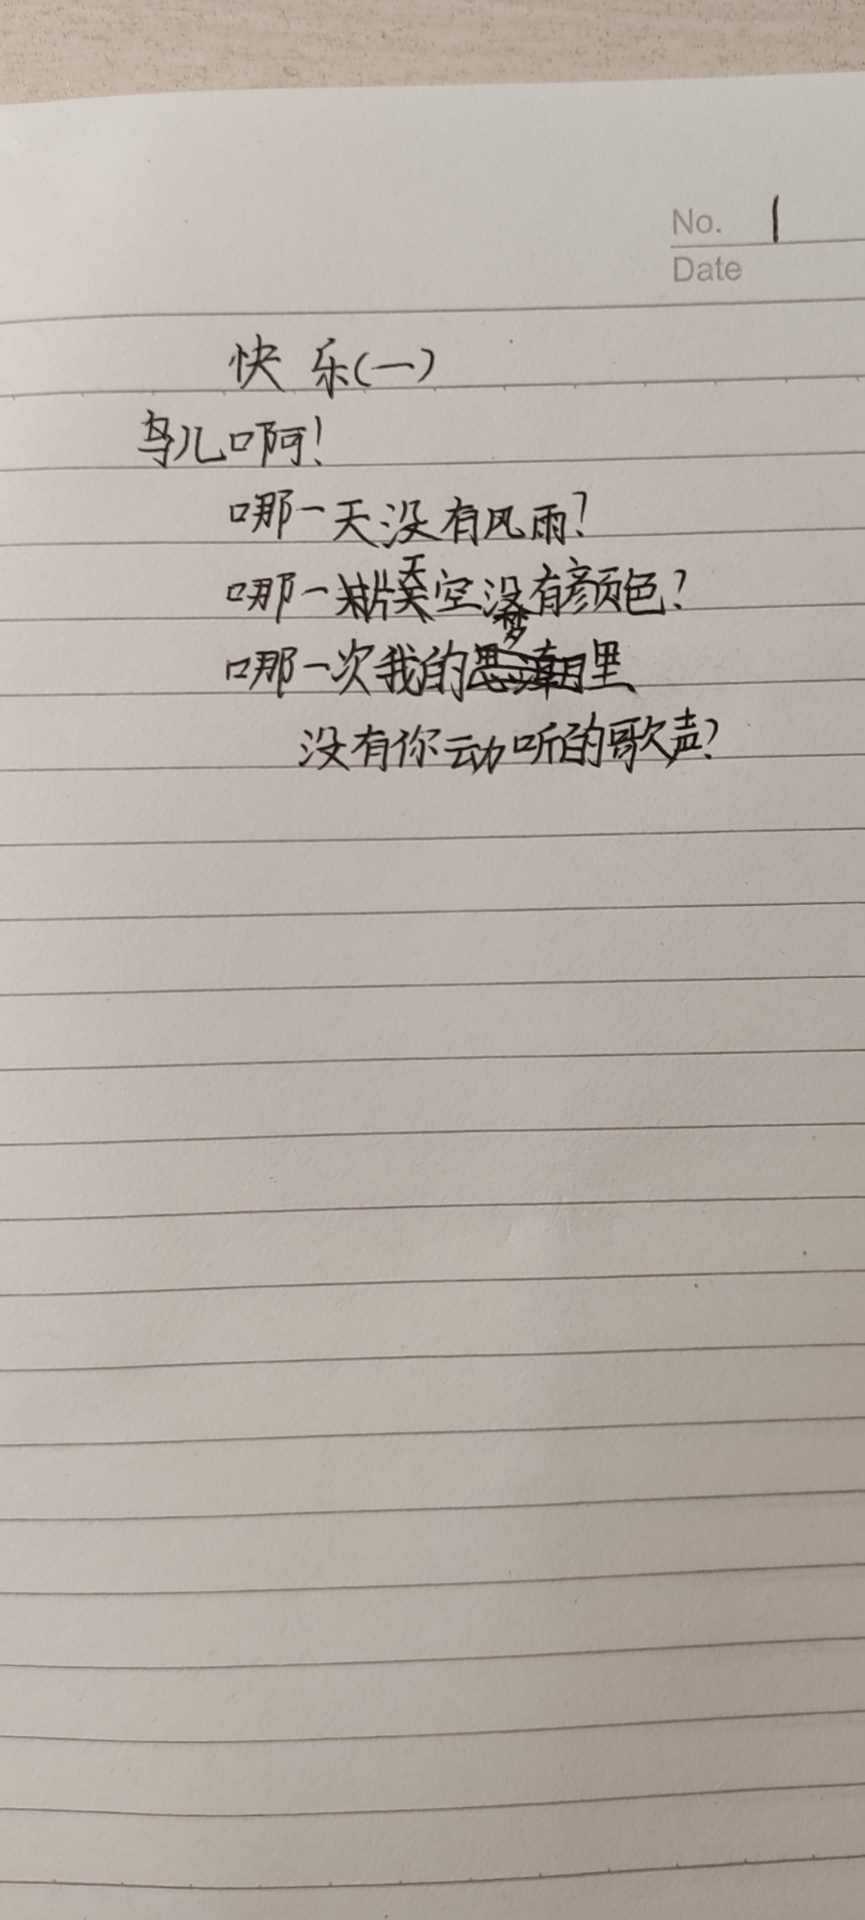 No. 1
Date
快乐(一)
鸟儿啊!
哪一天没有风雨?
哪一片天空没有颜色?
哪一次我的梦里
没有你动听的歌声?